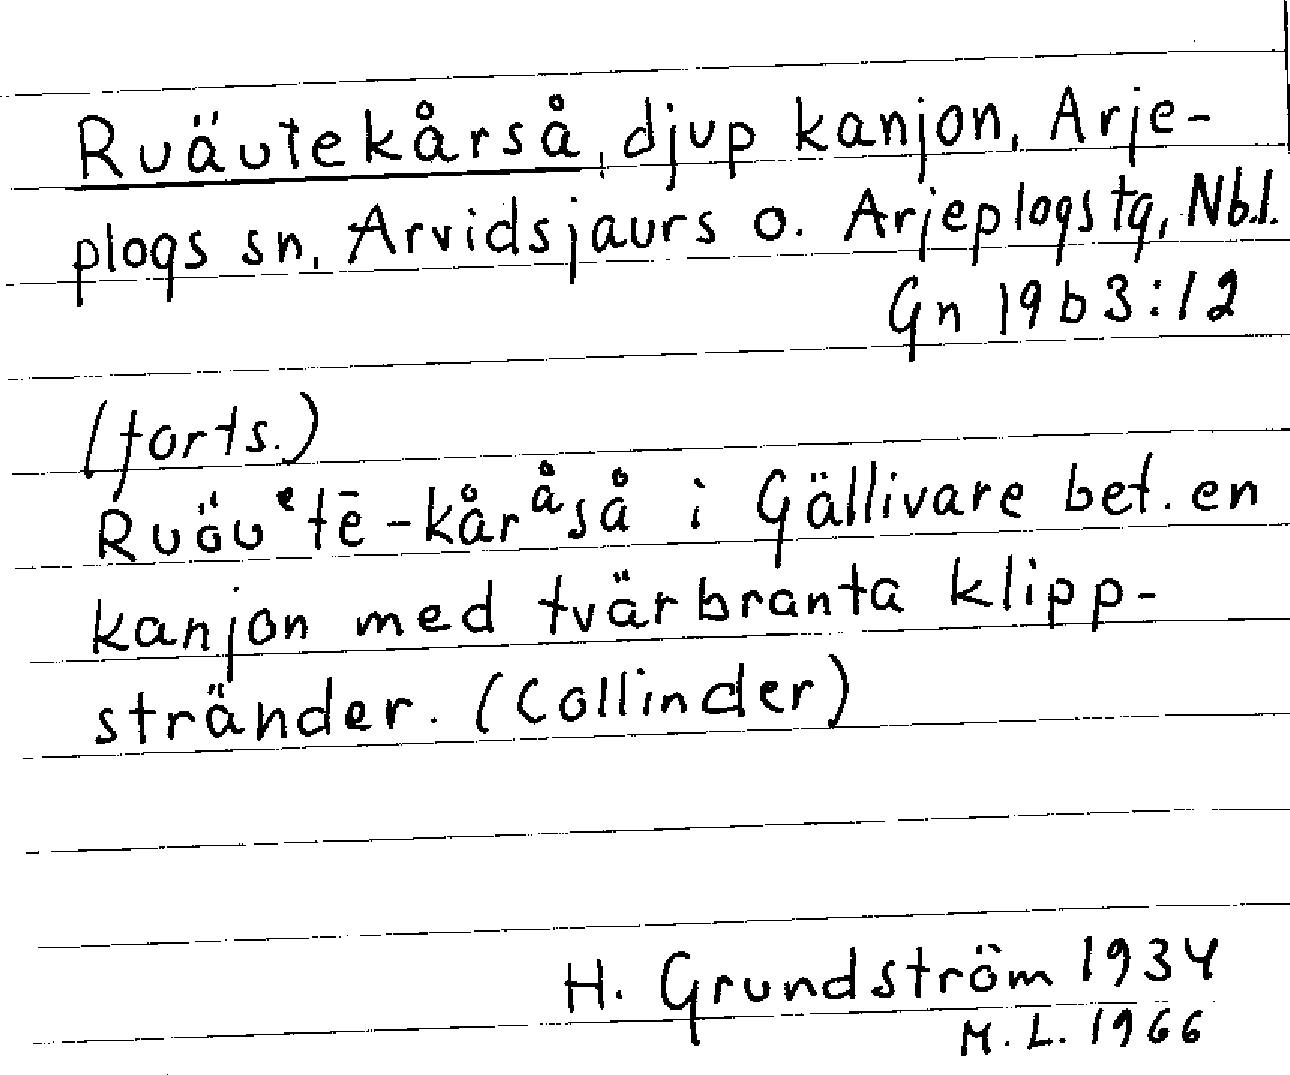 Ruäutekårså, djup kanjon, Arje-
plogs sn, Arvidsjaurs o. Arjeplogs tg, Nb.l.
Gn 19 b 3:12
(forts.)
Ruöuᵉtē-kåråså i Gällivare bet. en
kanjon med tvärbranta klipp-
stränder. (Collinder)
H. Grundström 1934
M.L. 1966